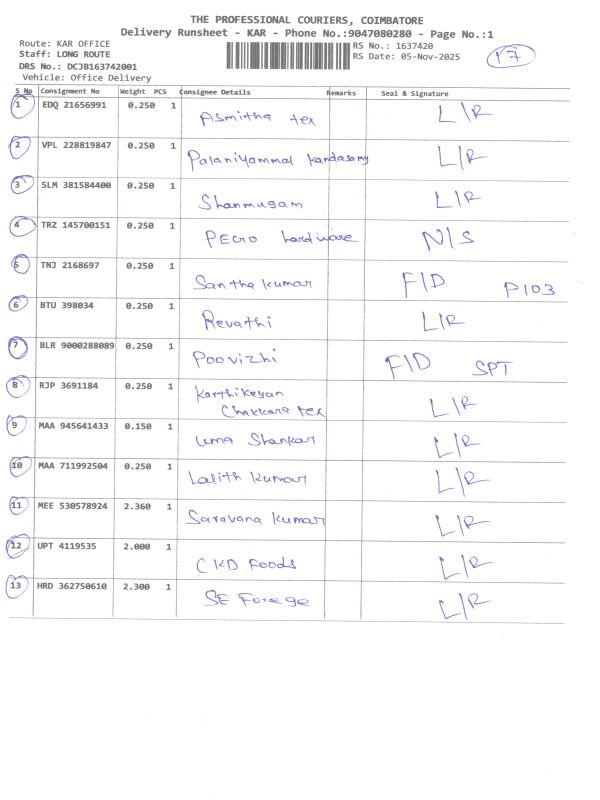 THE PROFESSIONAL COURIERS, COIMBATORE
Delivery Runsheet - KAR - Phone No.:9047080280 - Page No.:1
Route: KAR OFFICE
Staff: LONG ROUTE
DRS No.: DCJB163742001
Vehicle: Office Delivery
RS No.: 1637420
RS Date: 05-Nov-2025
17
S No Consignment No Weight PCS Consignee Details Remarks Seal & Signature
1 EDQ 21656991 0.250 1 Asmitha tex L/R
2 VPL 228819847 0.250 1 Palaniyammal Kandasamy L/R
3 SLM 381584400 0.250 1 Shanmugam L/R
4 TRZ 145700151 0.250 1 hardware N/S
5 TNJ 2168697 0.250 1 Santhakumar F/D P103
6 BTU 398034 0.250 1 Revathi L/R
7 BLR 9000288089 0.250 1 Poovizhi F/D SPT
8 RJP 3691184 0.250 1 Karthikeyan
Chakkara tex L/R
9 MAA 945641433 0.150 1 Uma Shankar L/R
10 MAA 711992504 0.250 1 Lalith Kumar L/R
11 MEE 530578924 2.360 1 Saravana Kumar L/R
12 UPT 4119535 2.000 1 CKD Foods L/R
13 HRD 362750610 2.300 1 SE Forege L/R